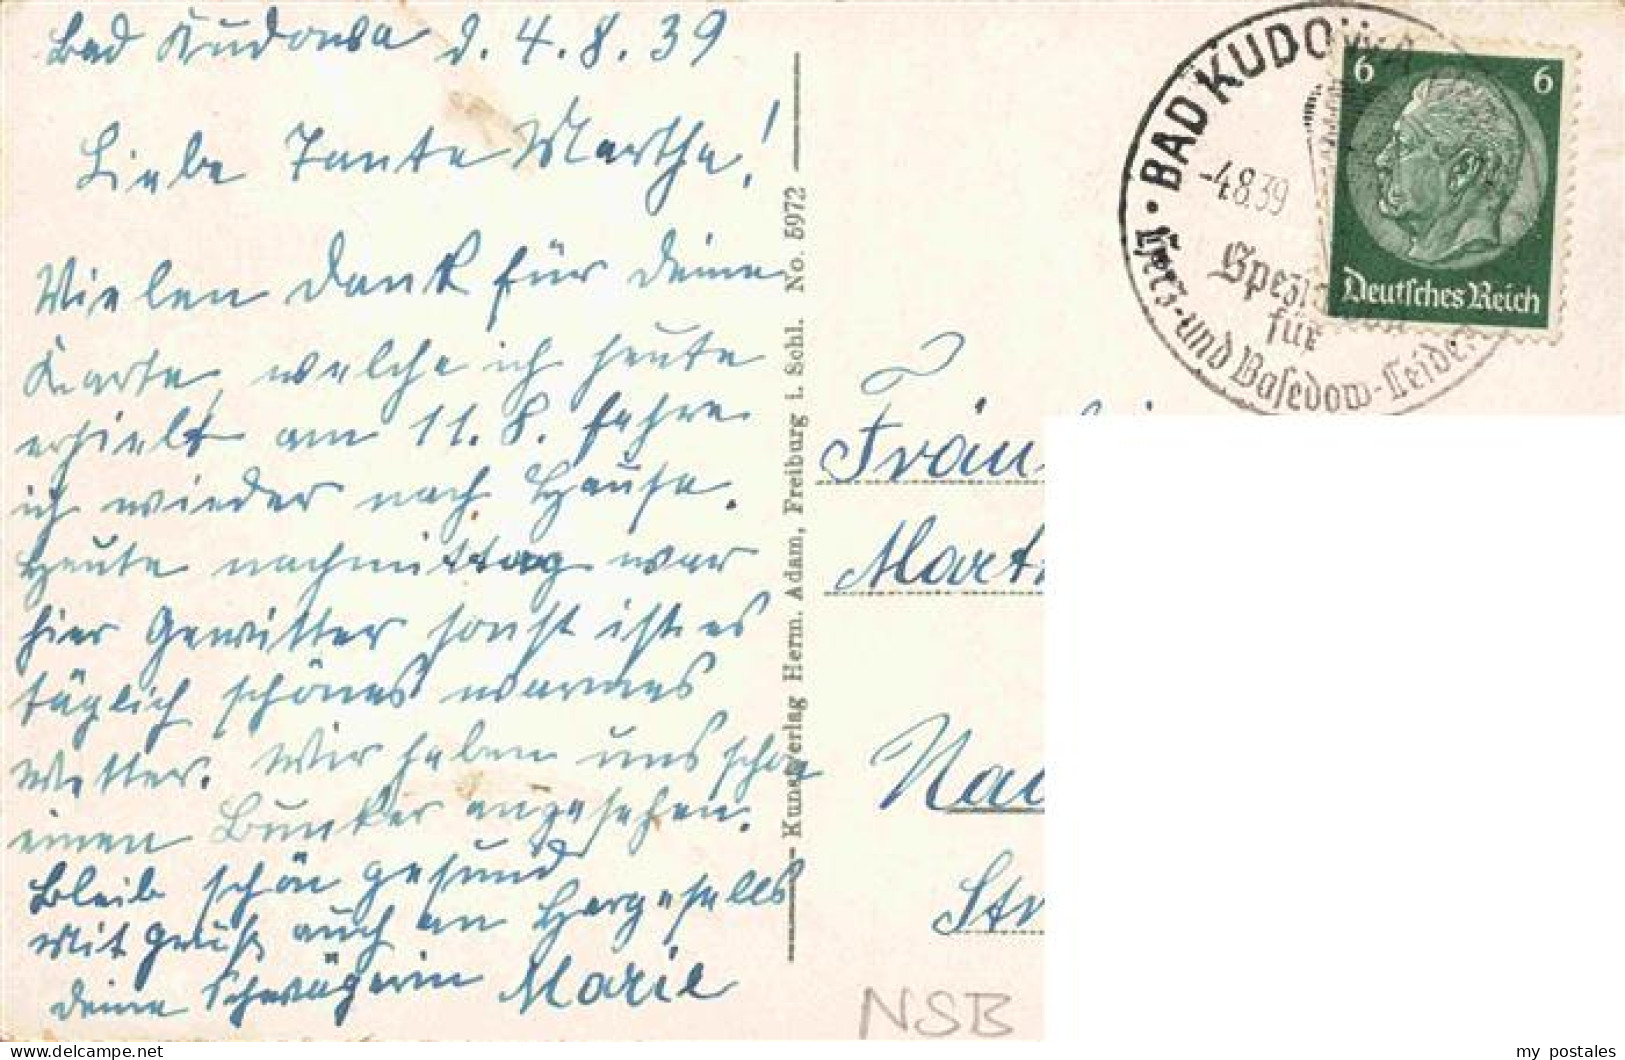 Bad Kudowa d. 4.8.39
Liebe Tante Martha!
Vielen Dank für deine
Karte, welche ich heute
erhielt am 11.8. fahre
ich wieder nach Hause.
Heute nachmittag war
hier Gewitter sonst ist es
täglich schönes warmes
Wetter. Wir haben uns schon
einen Bunker angesehen.
Bleib schön gesund
Mit Gruß auch an Hergesells
deine Schwägerin Marie
Kunstverlag Herm. Adam, Freiburg i. Schl. No. 5972
· BAD KUDOWA
-4.8.39
für
Herz- und Basedow-Leiden
6 6
Deutsches Reich
Fräu
Mart
Na
Str
NSB
my postales